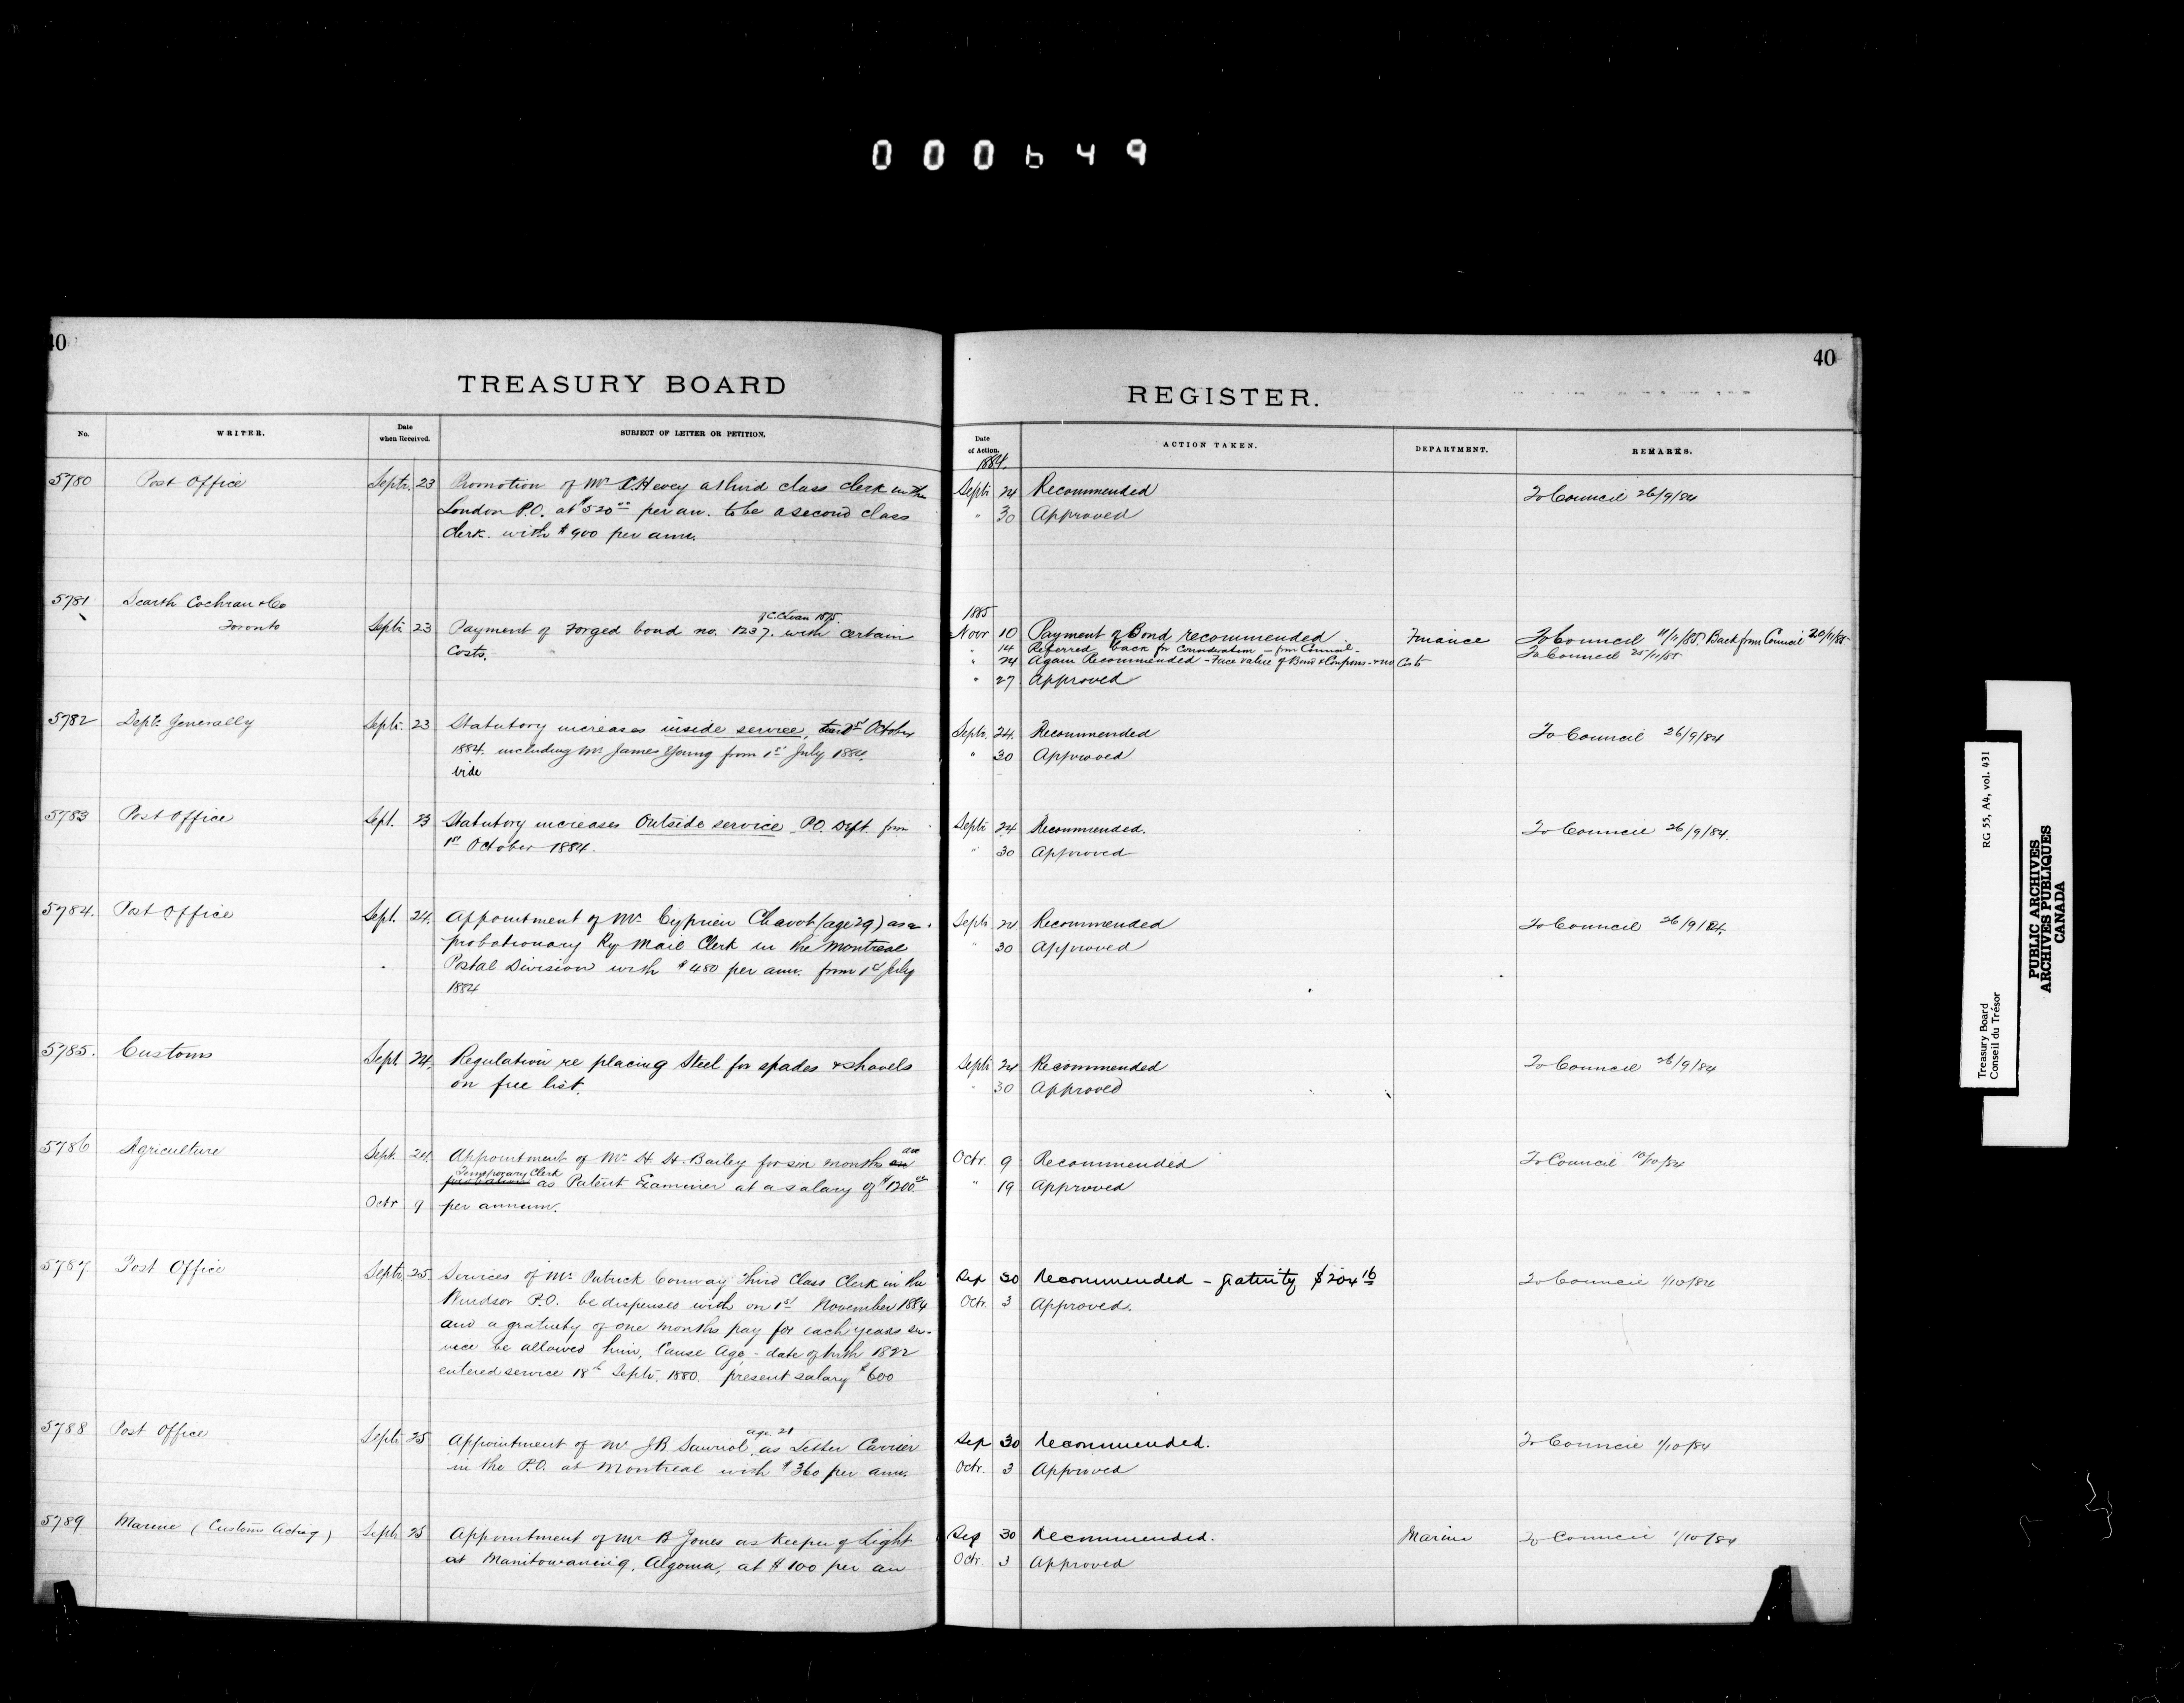 000649
40
40
TREASURY BOARD
REGISTER.
No.
WRITER.
Date when Received.
SUBJECT OF LETTER OR PETITION.
Date of Action.
ACTION TAKEN.
DEPARTMENT.
REMARKS.
1884.
5780 Post Office Septr. 23 Promotion of Mr Hevey a third class clerk in the
London P.O. at $520 00 per an. to be a second class
clerk with $900 per ann.
Septr 24 Recommended To Council 26/9/84
" 30 Approved
5781 Scarth Cochran & Co
Toronto Septr 23 Payment of Forged bond no. 1237. with certain
1875.
Costs.
1885
Novr 10 Payment of Bond recommended Finance To Council 11/11/85. Back from Council 20/11/85
" 14 Referred back for Consideration - from Council -
" 24 Again Recommended - Face value of Bond & Coupons - & no Costs To Council 25/11/85
" 27 Approved
5782 Depts. Generally Septr. 23 Statutory increases inside service, 1st October
1884. including Mr James Young from 1st July 1884.
vide
Septr. 24. Recommended To Council 26/9/84
" 30 Approved
5783 Post Office Sept. 23 Statutory increases Outside service P.O. Dept. from
1st October 1884.
Septr 24 Recommended. To Council 26/9/84.
" 30 Approved
5784. Post Office Sept. 24. Appointment of Mr Cyprien Chavot (age 29) as a
probationary Ry Mail Clerk in the Montreal
Postal Division with $480 per ann. from 1st July
1884
Septr 24 Recommended To Council 26/9/84.
" 30 Approved
5785. Customs Sept. 24. Regulation re placing Steel for spades & shovels
on free list.
Septr 24 Recommended To Council 26/9/84
" 30 Approved
5786 Agriculture Sept. 24 Appointment of Mr H. H. Bailey for six months as a
Temporary Clerk
as Patent Examiner at a salary of $1200 00
Octr 9 per annum.
Octr. 9 Recommended To Council 10/10/84
" 19 Approved
5787. Post Office Septr 25 Services of Mr Patrick Conway Third Class Clerk in the
Windsor P.O. be dispensed with on 1st November 1884
and a gratuity of one months pay for each years ser-
vice be allowed him, Cause Age - date of birth 1822
entered service 18th Septr. 1880. present salary $600
Sep 30 Recommended - gratuity $204 16 To Council 1/10/84
Octr. 3 Approved.
5788 Post Office Septr 25 Appointment of Mr J B Sauriol, age 21 as Letter Carrier
in the P.O. at Montreal with $360 per ann.
Sep 30 Recommended. To Council 1/10/84
Octr. 3 Approved
5789 Marine (Customs Acting) Septr 25 Appointment of Mr B Jones as Keeper of Light
at Manitowaning, Algoma, at $100 per an
Sep 30 Recommended. Marine To Council 1/10/84
Octr. 3 Approved
Treasury Board RG 55, A4, vol. 431
Conseil du Trésor
PUBLIC ARCHIVES
ARCHIVES PUBLIQUES
CANADA